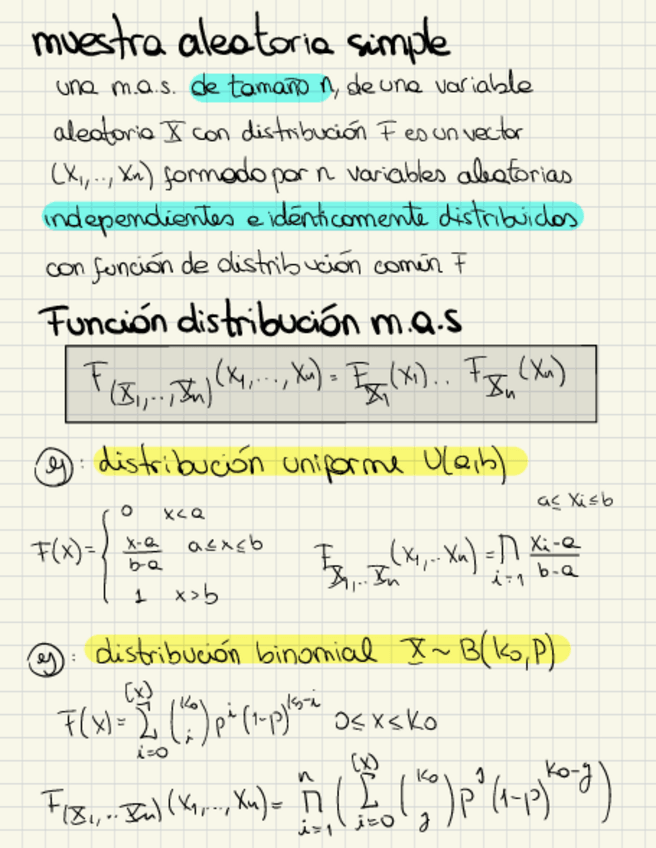 muestra aleatoria simple
una m.a.s. de tamaño n, de una variable
aleatoria X con distribución F es un vector
(X₁,.., Xn) formado por n variables aleatorias
independientes e idénticamente distribuidas
con función de distribución común F
Función distribución m.a.s
F(X₁,..,Xn)(x₁,...,xn) = F_X₁(x₁).. F_Xn(xn)
ej: distribución uniforme U(a,b)
F(x) = { 0 x<a
x-a/b-a a≤x≤b
1 x>b
F_X₁,..Xn(x₁,..xn) = ∏ i=1 n xi-a/b-a a≤xi≤b
ej: distribución binomial X ~ B(k₀,p)
F(x) = ∑ i=0 [x] (k₀ i) p^i (1-p)^k₀-i 0≤x≤k₀
F(X₁,..Xn)(x₁,...,xn) = ∏ i=1 n (∑ i=0 [x] (k₀ j) p^j (1-p)^k₀-j)